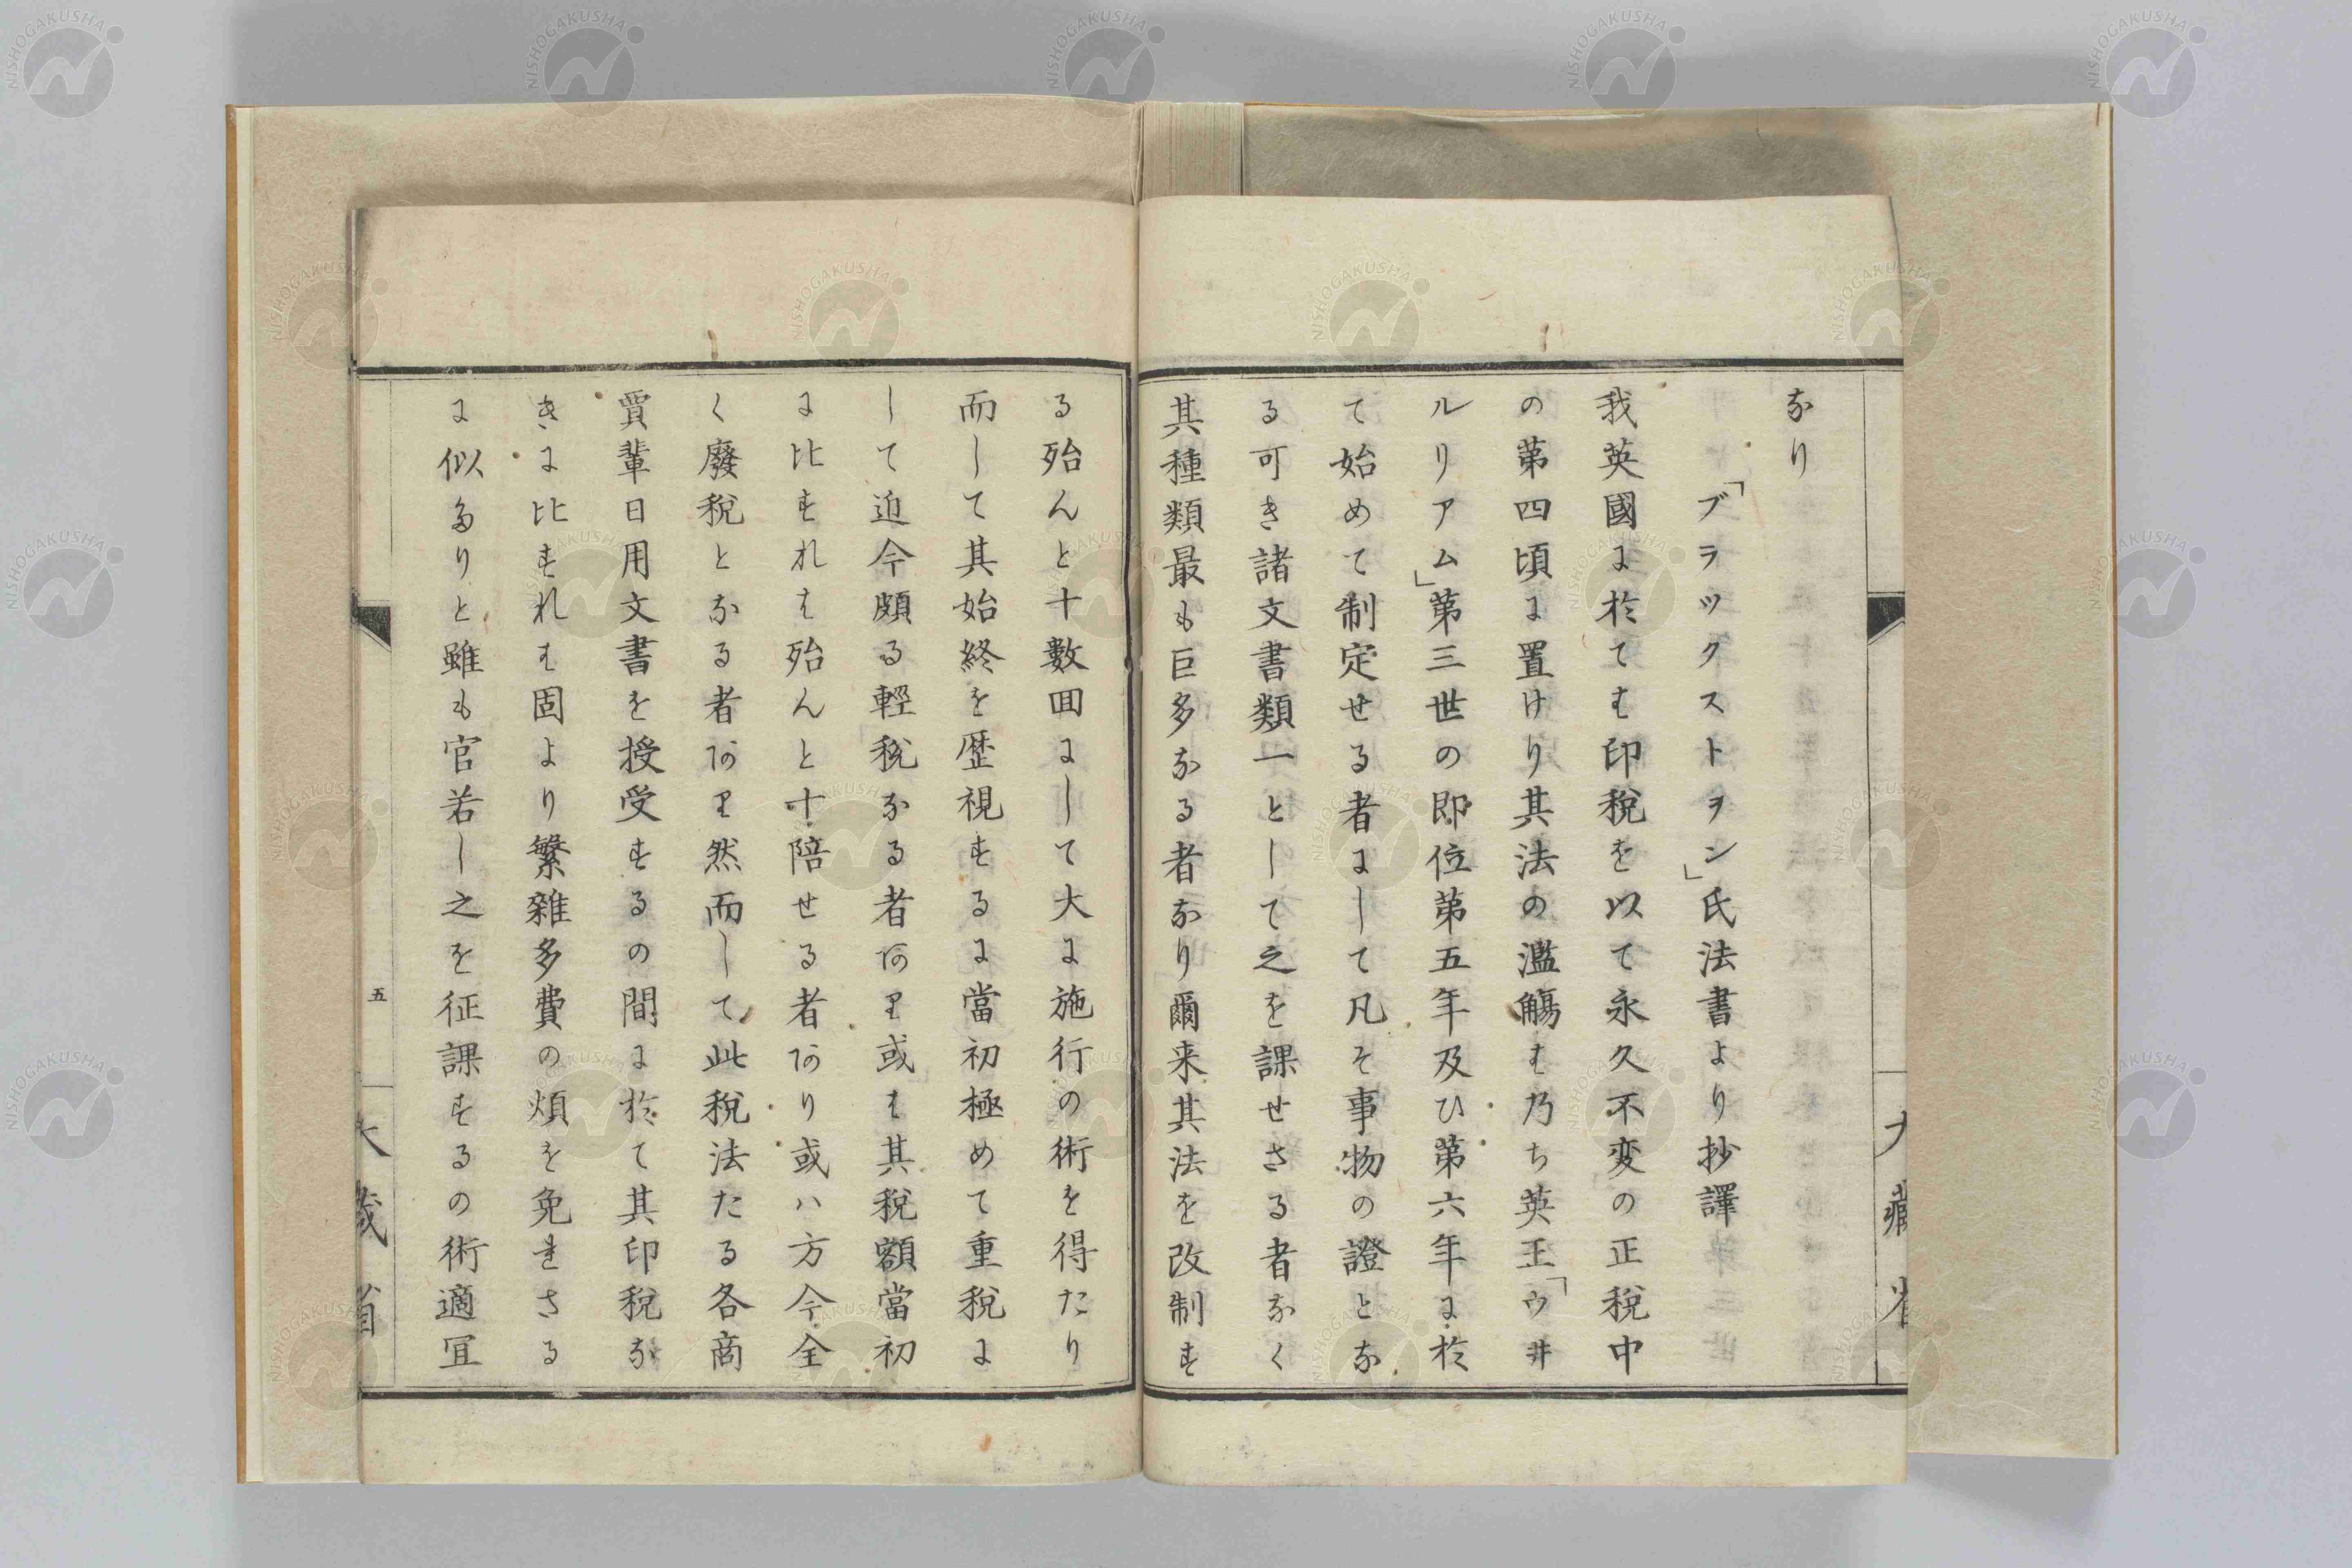 なり
「ブラックストヲン」氏法書より抄譯
我英國に於ては印税を以て永久不変の正税中
の第四頃に置けり其法の濫觴は乃ち英王「ウヰ
ルリアム」第三世の即位第五年及ひ第六年に於
て始めて制定せる者にして凡そ事物の證とな
る可き諸文書類一として之を課せさる者なく
其種類最も巨多なる者なり爾来其法を改制す
る殆んと十數囬にして大に施行の術を得たり
而して其始終を歴視するに當初極めて重税に
して迫今頗る輕税なる者あり或は其税額當初
に比すれは殆んと十陪せる者あり或ハ方今全
く廢税となる者あり然而して此税法たる各商
賈輩日用文書を授受するの間に於て其印税な
きに比すれは固より繁雜多費の煩を免れさる
に似たりと雖も官若し之を征課するの術適冝
五
大藏省
大藏省
NISHOGAKUSHA